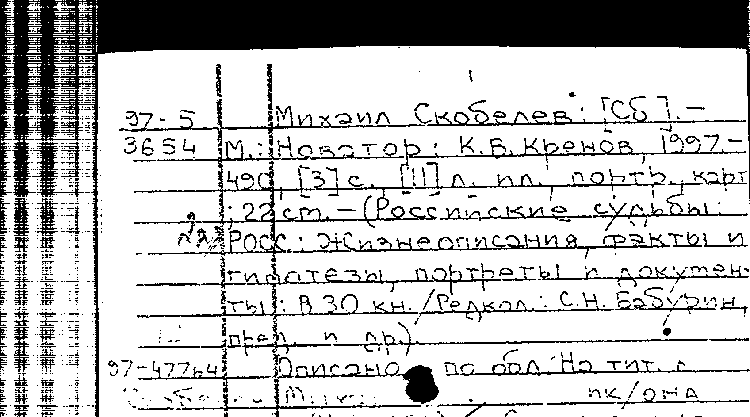 97-5 Михаил Скобелев: [Сб]. -
3654 М.: Новатор: К.Б. Кренов, 1997. -
490, [3] с., [11] л. ил., портр., карт
; 22 см. - (Российские судьбы:
РОСС: Жизнеописания, факты и
гипотезы, портреты и докумен-
ты: В 30 кн. / Редкол.: С.Н. Бабурин,
пред. и др.).
97-47764 Описано по обл. На тит. л
пк/она